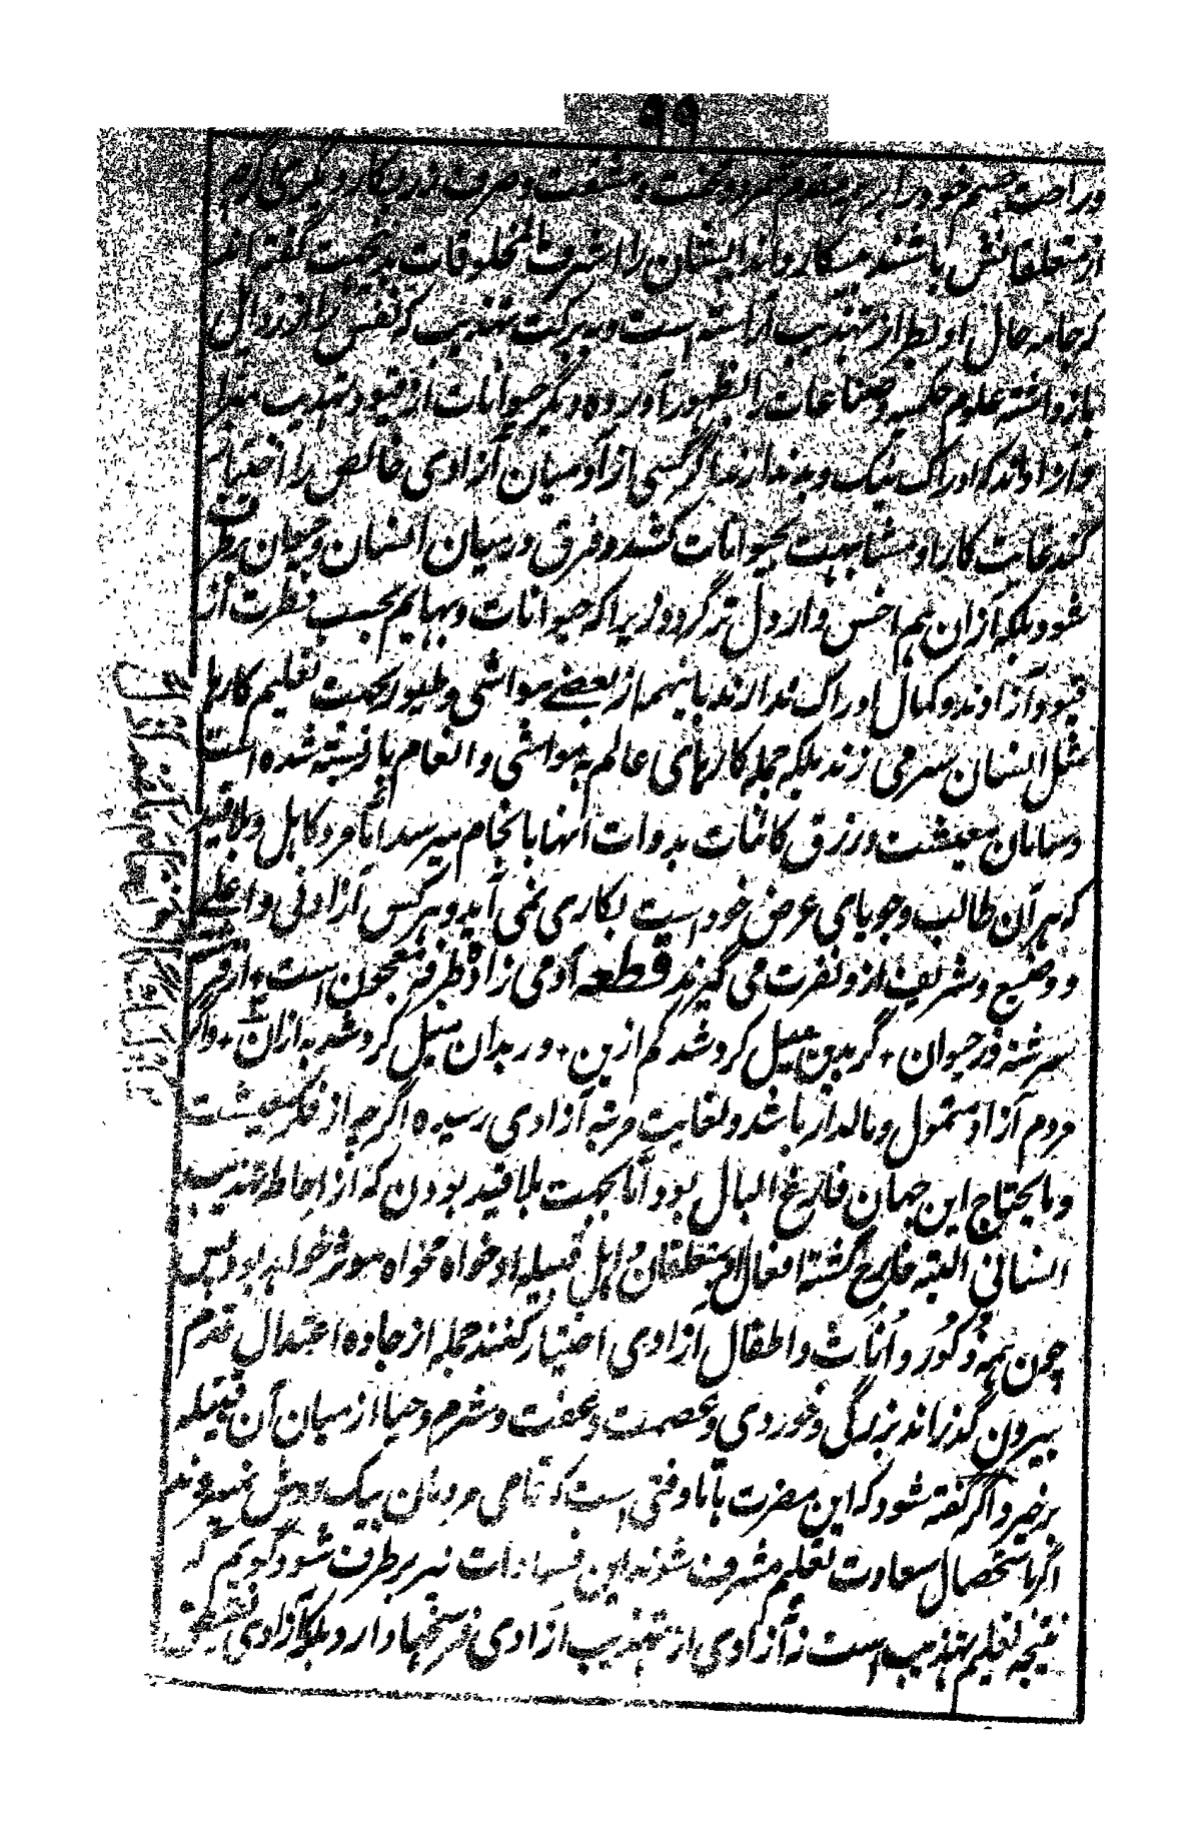 ۹۹
و راحت جسم خود را بر همه مقدم شمرد و محنت و مشقت و صرف زر در کار دیگری که
از متعلقانش باشند بیکار داند انسان را اشرف المخلوقات بدینجهت گفته اند
که جامه حال او بطراز تهذیب آراسته است و به برکت تهذیب که نفس را از زوال
بازداشته علوم حکمیه و صناعات را بظهور آورده دیگر حیوانات از قیود تهذیب مبرا
و آزاد اند که ادراک نیک و بد ندارند اگر کسی از آدمیان آزادی خالص را اختیار
کند غایت کار او مشابهت بحیوانات کشد و فرق در میان انسان و حیوان برطرف
شود بلکه از آن هم اخس و ارذل تر گردد زیرا که حیوانات و بهایم بحسب فطرت از
قیود آزادند و کمال ادراک ندارند با اینهمه از بعضے مواشی و طیور بجهت تعلیم کارها
مثل انسان سر می زند بلکه جمله کارهای عالم به مواشی و انعام باز بسته شده است
و سامان معیشت و رزق کائنات بدوات آنها بانجام میرسد اما مرد کاهل و بلاقید
که هر آن طالب و جویای غرض خود است بکاری نمی آید و هر کس از ادنی و اعلے
و وضیع و شریف ازو نفرت می گیرند قطعه آدمی زاده طرفه معجون است * از فرشته
سرشته وز حیوان * گر بدین میل کرد شد کم ازین * ور بدان میل کرد شد به ازان * و اگر
مردم آزاد متمول و مالدار باشد و بغایت مرتبه آزادی رسیده اگرچه از فکر معیشت
و مایحتاج این جهان فارغ البال بود اما بجهت بلاقید بودن که از احاطه تهذیب
انسانی البته خارج گشته افعال او بمتعلقان و اهل قبیله او خواه مخواه موثر خواهد بود پس
چون همه ذکور و اناث و اطفال آزادی اختیار کنند جمله از جاده اعتدال قدم
بیرون گذراند بزرگی و خوردی و عصمت و عفت و شرم و حیا از میان آن قبیله
برخیزد و اگر گفته شود که این مضرت تا وقتی است که تمامی مردمان بیک روش نمیروند
اگر باستحصال سعادت تعلیم مشرف شوند این فسادات نیز برطرف شود گویم که
نتیجه تعلیم تهذیب است نه آزادی آزادی از تهذیب فرسخها دارد بلکه آزادی نقیض